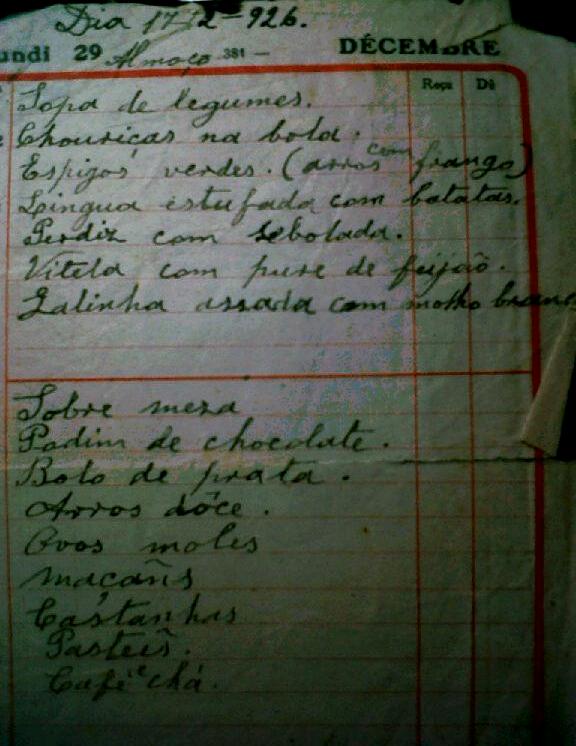 Dia 17-12-926.
undi 29 Almoço 381 — DÉCEMBRE
Reçu Dû
Sopa de legumes.
Chouriças na bola.
Espigos verdes. (arros com frango)
Lingua estufada com batatas.
Perdiz com sebolada.
Vitela com pure de feijaõ.
Galinha assada com molho branc
Sobre meza
Podim de chocolate.
Bolo de prata.
Arros dôce.
Ovos moles
Maçañs
Castanhas
Pasteis.
Café e chá.